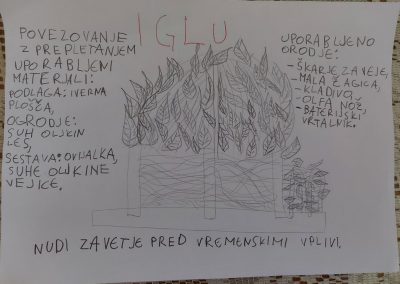 IGLU
POVEZOVANJE
Z PREPLETANJEM
UPORABLJENI
MATERIJALI:
PODLAGA: IVERNA
PLOŠČA,
OGRODJE:
SUH OLJKIN
LES,
SESTAVA: OVIJALKA,
SUHE OLJKINE
VEJICE.
UPORABLJENO
ORODJE:
-ŠKARJE ZA VEJE,
-MALA ŽAGICA,
-KLADIVO,
-OLFA NOŽ,
-BATERIJSKI
VRTALNIK.
NUDI ZAVETJE PRED VREMENSKIMI VPLIVI.